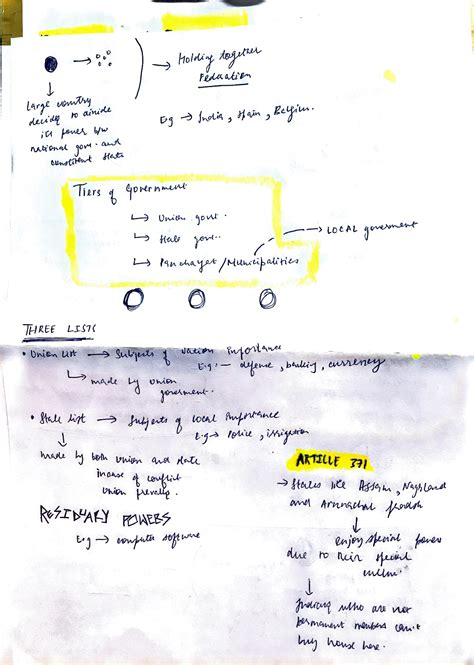 Holding together
Federation
Large country
decides to divide
its power b/w
national govt. and
constituent state
Eg → India, Spain, Belgium.
Tiers of Government
↳ Union govt.
↳ State govt.
↳ Panchayat / Municipalities — LOCAL government
THREE LISTS
• Union List → Subjects of nation importance
E.g:- defense, banking, currency
↳ made by union
government.
• State list → Subjects of local importance
E.g → Police, irrigation
made by both union and state
incase of conflict
union prevails.
RESIDUARY POWERS
E.g → computer software
ARTICLE 371
→ States like Assam, Nagaland
and Arunachal pradesh
enjoy special powers
due to their special
culture.
Indians who are not
permanent members can't
buy house here.